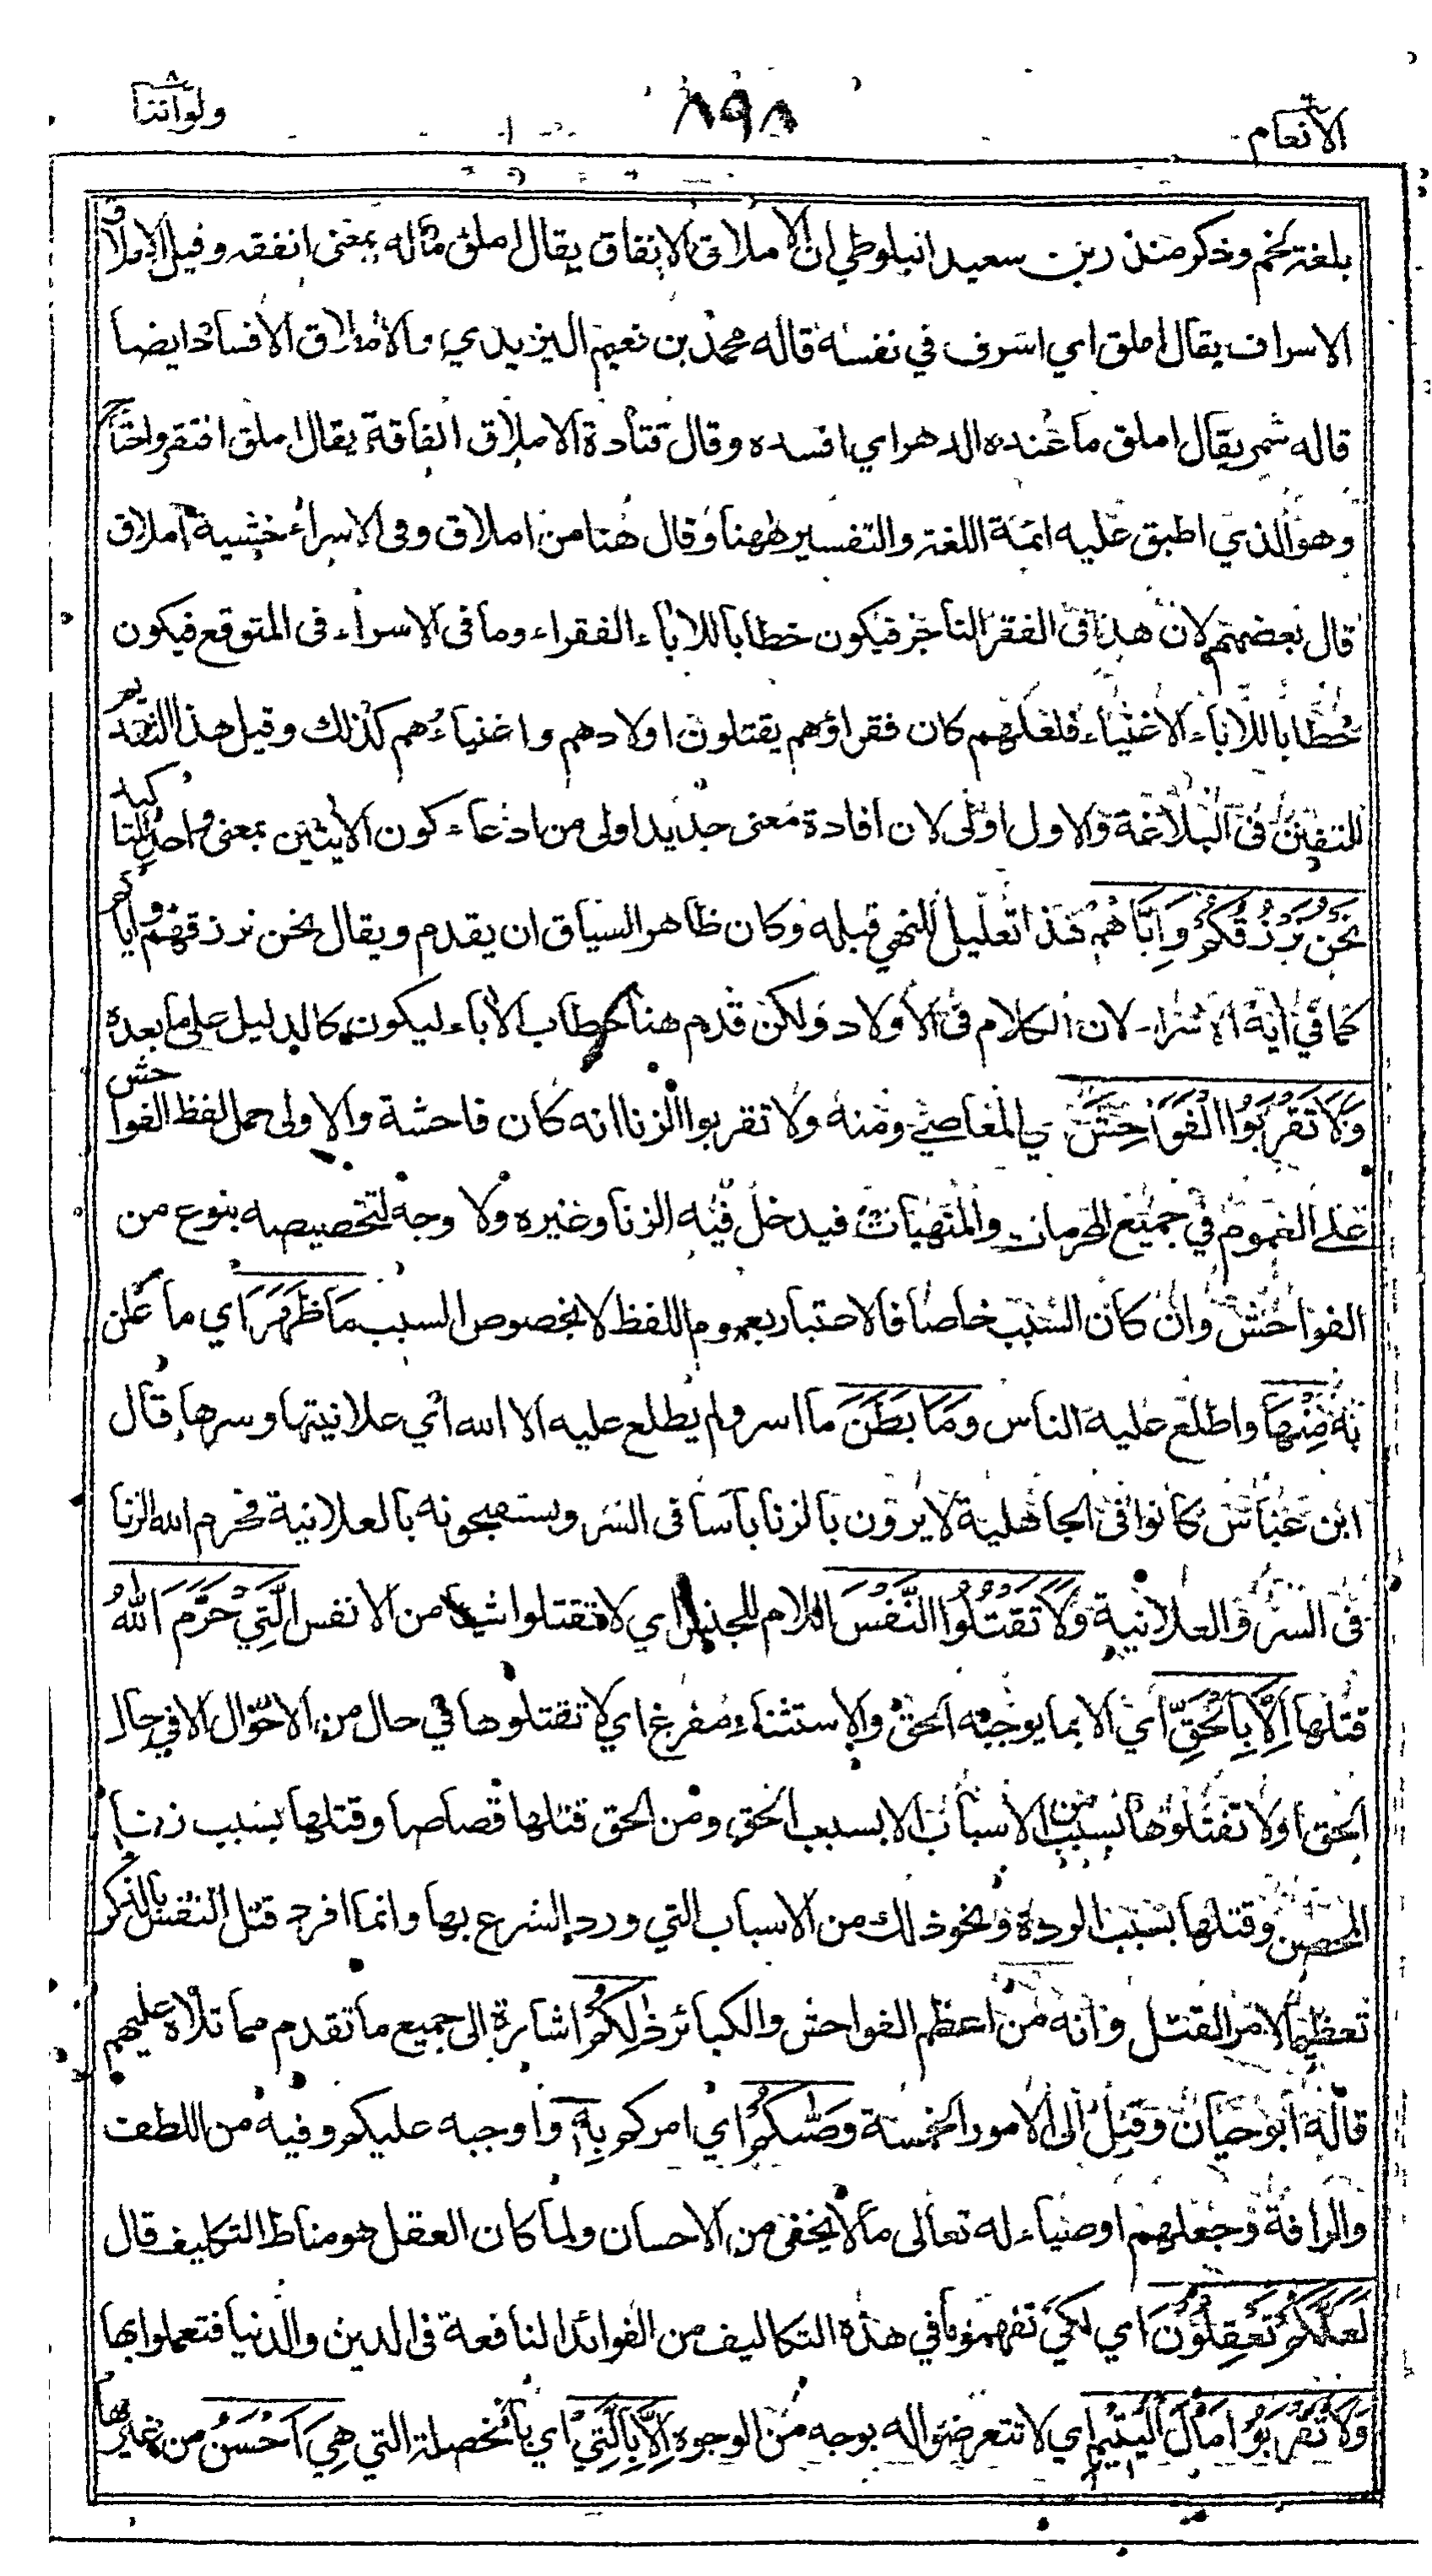 الانعام
٨٩٨
ولواننا ٨
بلغة لخم وذكر منذر بن سعيد البلوطي ان الاملاق الانفاق يقال املق ماله بمعنى انفقه وقيل الاملاق
الاسراف يقال املق اي اسرف في نفسه قاله محمد بن نعيم اليزيدي والاملاق الافساد ايضا
قاله شمر يقال املق ما عنده الدهر اي افسده وقال قتادة الاملاق الفاقة يقال املق افتقر واحتاج
وهو الذي اطبق عليه ائمة اللغة والتفسير ههنا وقال هنا من املاق وفى الاسراء خشية املاق
قال بعضهم لان هذا فى الفقر الناجز فيكون خطابا للاباء الفقراء وما فى الاسراء فى المتوقع فيكون
خطابا للاباء الاغنياء فلعلهم كان فقراؤهم يقتلون اولادهم واغنياءهم كذلك وقيل هذا التعبير
للتفنن فى البلاغة والاول اولى لان افادة معنى جديد اولى من ادعاء كون الايتين بمعنى واحد للتاكيد
نَحْنُ نَرْزُقُكُمْ وَاِيَّاهُمْ هذا تعليل للنهي قبله وكان ظاهر السياق ان يقدم ويقال نحن نرزقهم واياكم
كما في اية الاسراء لان الكلام فى الاولاد ولكن قدم هنا خطاب الاباء ليكون كالدليل على ما بعده
وَلَا تَقْرَبُوا الْفَوَاحِشَ اي المعاصي ومنه ولا تقربوا الزنا انه كان فاحشة والاولى حمل لفظ الفواحش
على العموم في جميع المحرمات والمنهيات فيدخل فيه الزنا وغيره ولا وجه لتخصيصه بنوع من
الفواحش وان كان السبب خاصا فالاعتبار بعموم اللفظ لا بخصوص السبب مَا ظَهَرَ اي ما علن
به مِنْهَا واطلع عليه الناس وَمَا بَطَنَ ما اسر ولم يطلع عليه الا الله اي علانيتها وسرها قال
ابن عباس كانوا فى الجاهلية لا يرون بالزنا باسا فى السر ويستقبحونه بالعلانية فحرم الله الزنا
فى السر والعلانية وَلَا تَقْتُلُوا النَّفْسَ اللام للجنس اي لا تقتلوا شيئا من الانفس الَّتِيْ حَرَّمَ اللهُ
قتلها اِلَّا بِالْحَقِّ اي الا بما يوجبه الحق والاستثناء مفرغ اي لا تقتلوها في حال من الاحوال الا في حال
الحق او لا تقتلوها بسبب من الاسباب الا بسبب الحق ومن الحق قتلها قصاصا وقتلها بسبب زنا
المحصن وقتلها بسبب الردة ونحو ذلك من الاسباب التي ورد الشرع بها وانما افرد قتل النفس بالذكر
تعظيما لامر القتل وانه من اعظم الفواحش والكبائر ذٰلِكُمْ اشارة الى جميع ما تقدم مما تلاه عليهم
قاله ابو حيان وقيل الى الامور الخمسة وَصّٰىكُمْ اي امركم بِهٖ واوجبه عليكم وفيه من اللطف
والرافة وجعلهم اوصياء له تعالى ما لا يخفى من الاحسان ولما كان العقل هو مناط التكليف قال
لَعَلَّكُمْ تَعْقِلُوْنَ اي لكي تفهموا ما في هذه التكاليف من الفوائد النافعة فى الدين والدنيا فتعملوا بها
وَلَا تَقْرَبُوْا مَالَ الْيَتِيْمِ اي لا تتعرضوا له بوجه من الوجوه اِلَّا بِالَّتِيْ اي بالخصلة التي هِيَ اَحْسَنُ من غيرها